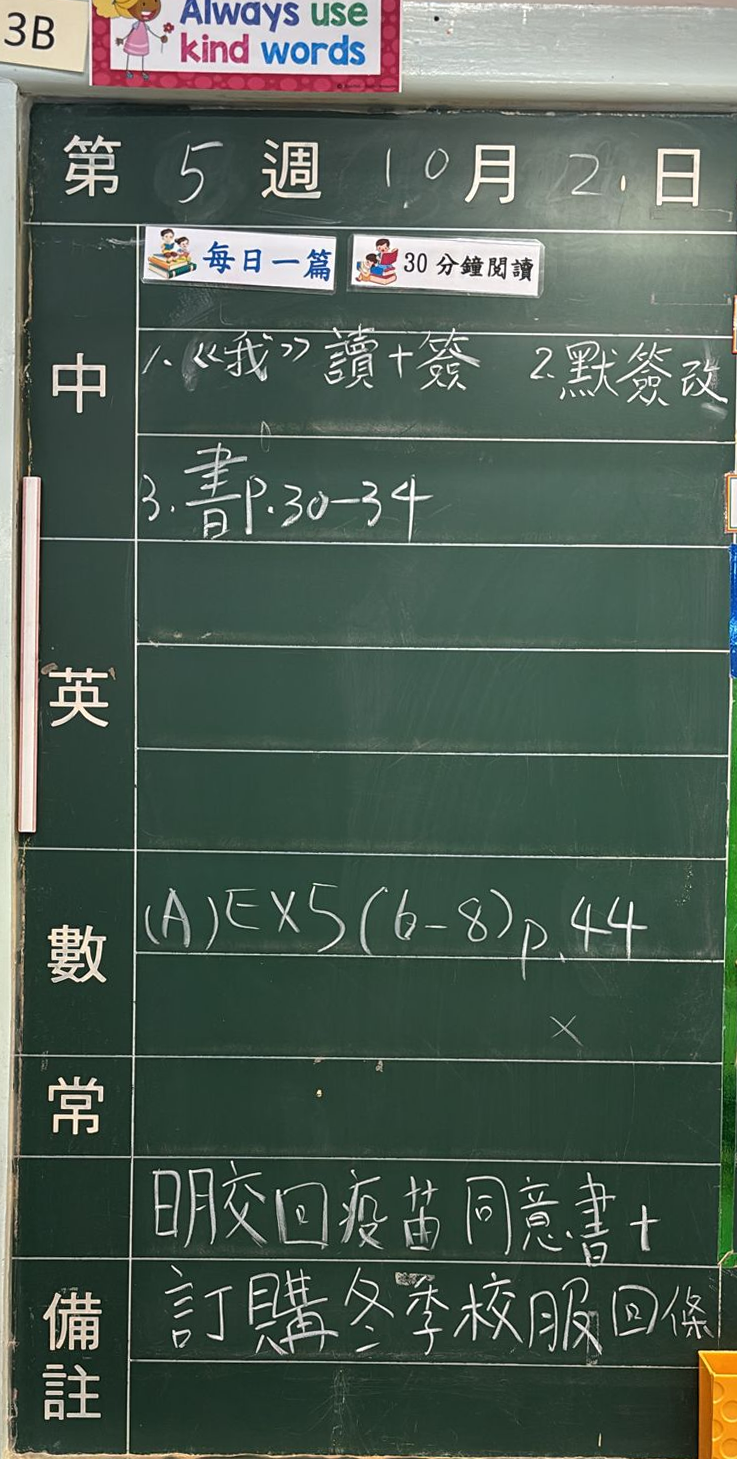 3B
Always use
kind words
第 5 週 10 月 2 日
每日一篇 30分鐘閱讀
中
1. 《我》讀+簽 2. 默簽改
3. 書P.30-34
英
數
(A) EX5 (6-8) p.44
x
常
明交回疫苗同意書+
備註
訂購冬季校服回條